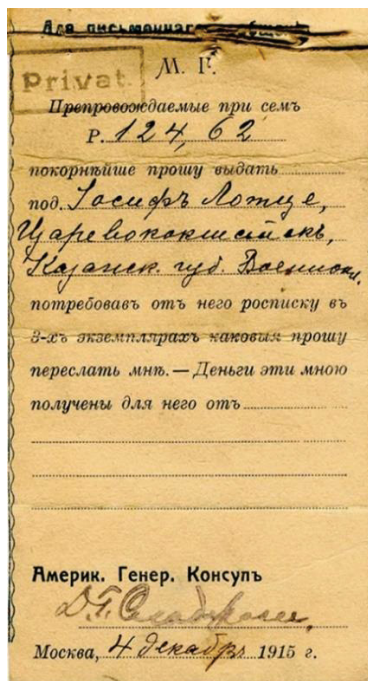 Для письменнаго
Privat.
М. Г.
Препровождаемые при семъ
Р. 124,62
покорнѣйше прошу выдать
под. Іосифъ Лотце,
Царевококшайскъ,
Казанск. губ. Военнопл.
потребовавъ отъ него росписку въ
3-хъ экземплярахъ каковыя прошу
переслать мнѣ. — Деньги эти мною
получены для него отъ
Америк. Генер. Консулъ
Москва, 4 декабр 1915 г.